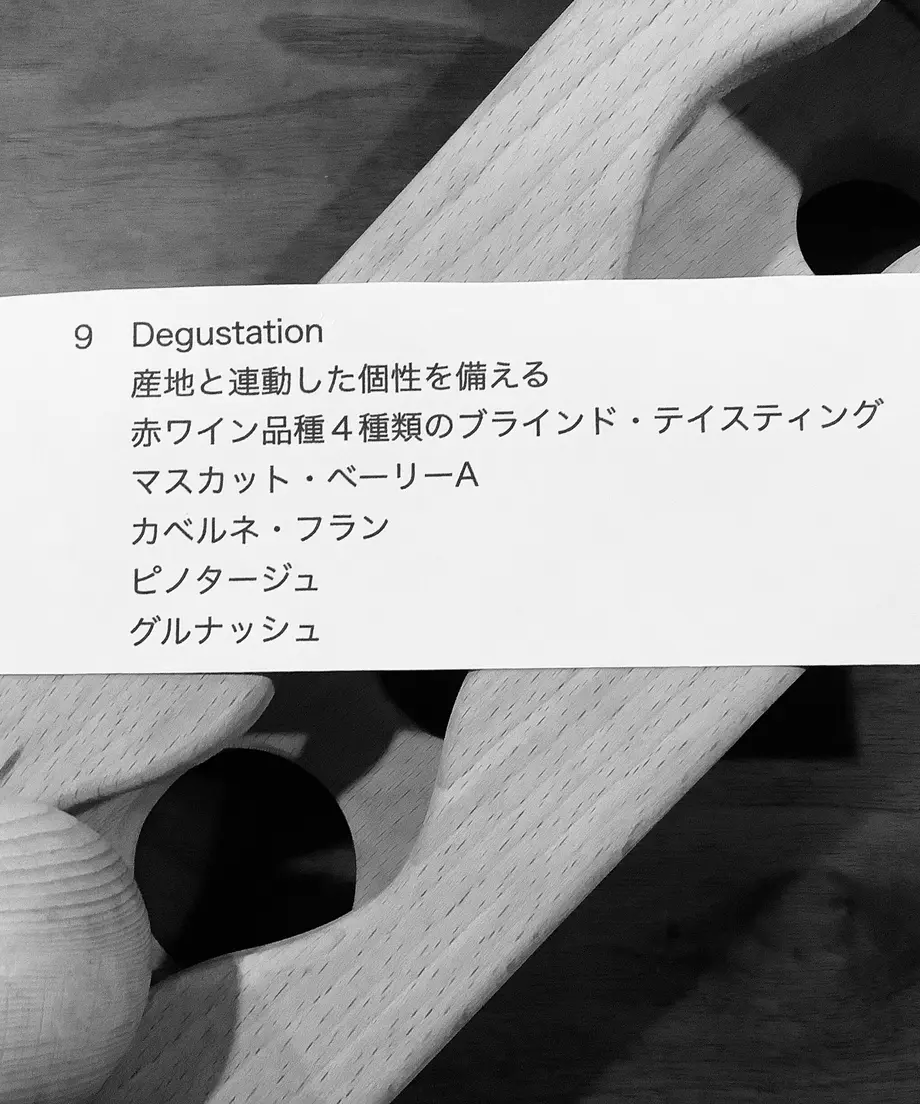 9 Degustation
産地と連動した個性を備える
赤ワイン品種４種類のブラインド・テイスティング
マスカット・ベーリーA
カベルネ・フラン
ピノタージュ
グルナッシュ